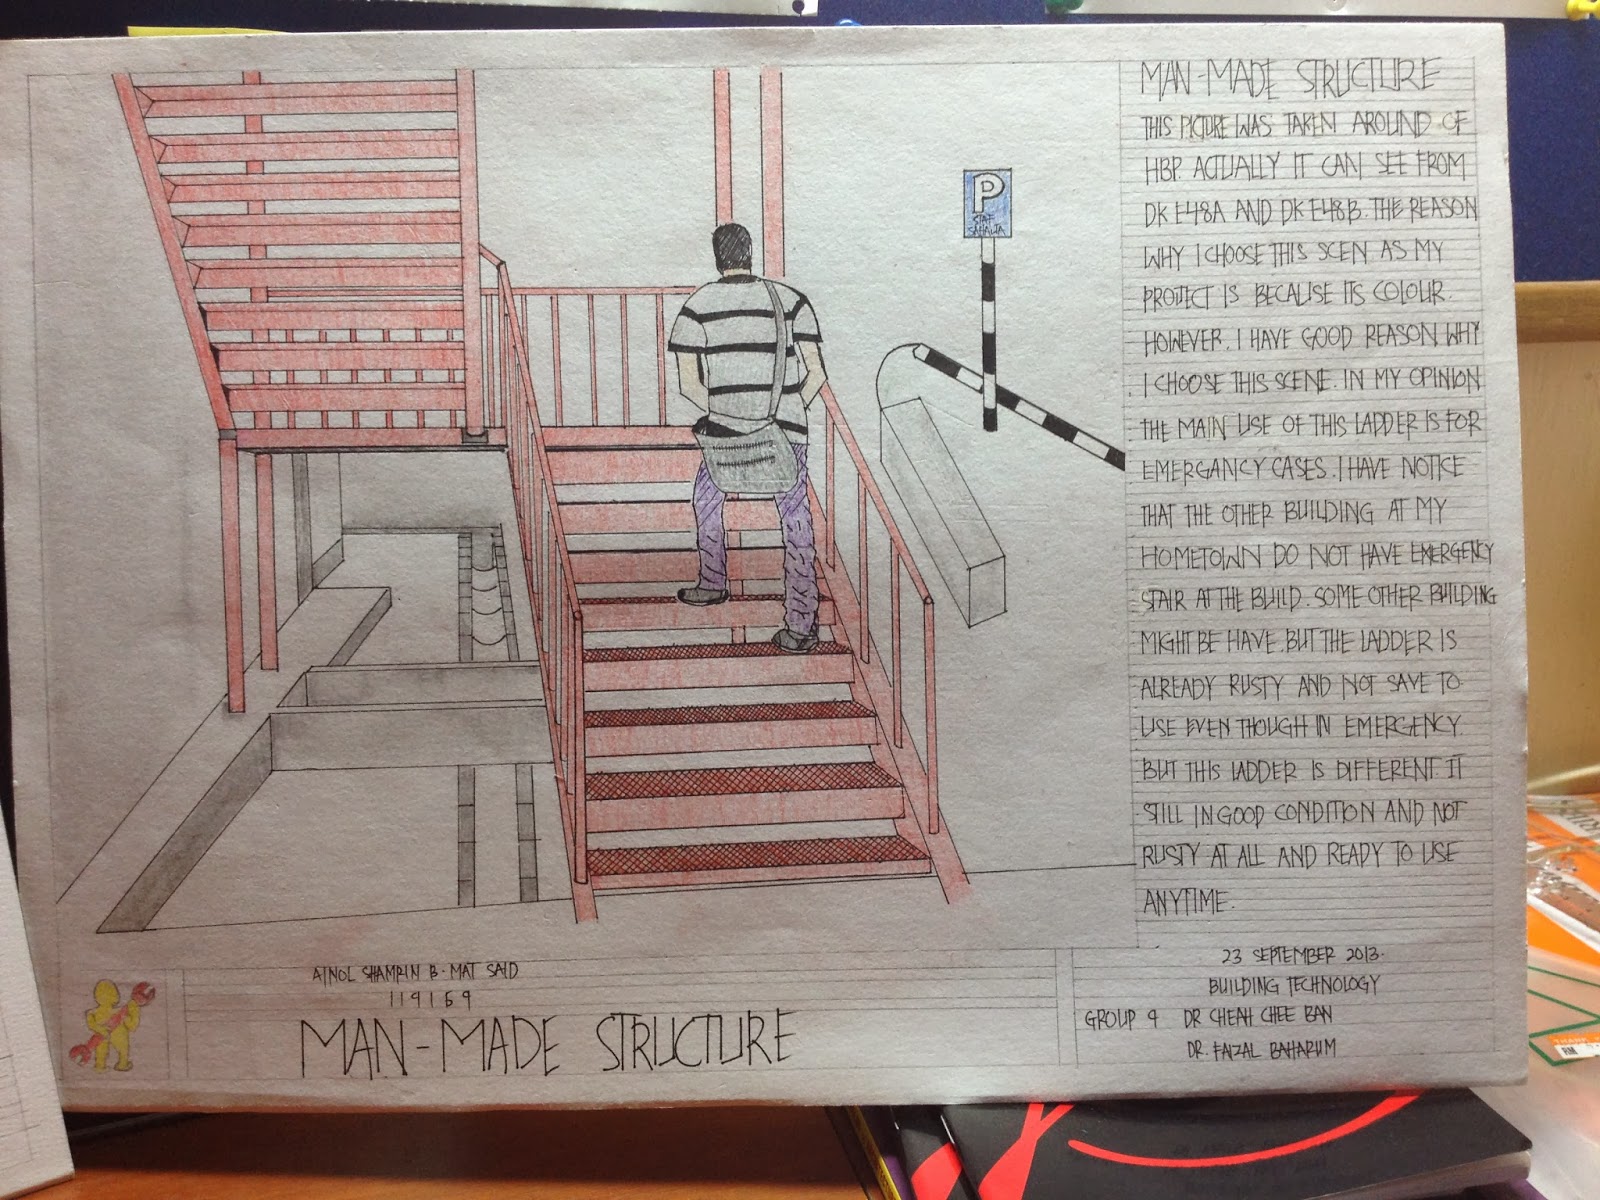 MAN-MADE STRUCTURE
THIS PICTURE WAS TAKEN AROUND OF
HBP. ACTUALLY IT CAN SEE FROM
DK F48A AND DK F48B. THE REASON
WHY I CHOOSE THIS SCEN AS MY
PROJECT IS BECAUSE ITS COLOUR.
HOWEVER, I HAVE GOOD REASON WHY
I CHOOSE THIS SCENE. IN MY OPINION
THE MAIN USE OF THIS LADDER IS FOR
EMERGANCY CASES. I HAVE NOTICE
THAT THE OTHER BUILDING AT MY
HOMETOWN DO NOT HAVE EMERGENCY
STAIR AT THE BUILD. SOME OTHER BUILDING
MIGHT BE HAVE. BUT THE LADDER IS
ALREADY RUSTY AND NOT SAVE TO
USE EVEN THOUGH IN EMERGENCY.
BUT THIS LADDER IS DIFFERENT. IT
STILL IN GOOD CONDITION AND NOT
RUSTY AT ALL AND READY TO USE
ANYTIME.
P
STAF
SAHAJA
AINOL SHAMRIN B. MAT SAID
119169
MAN-MADE STRUCTURE
23 SEPTEMBER 2013.
BUILDING TECHNOLOGY
GROUP 9 DR CHEAH CHEE BAN
DR. FAIZAL BAHARUM